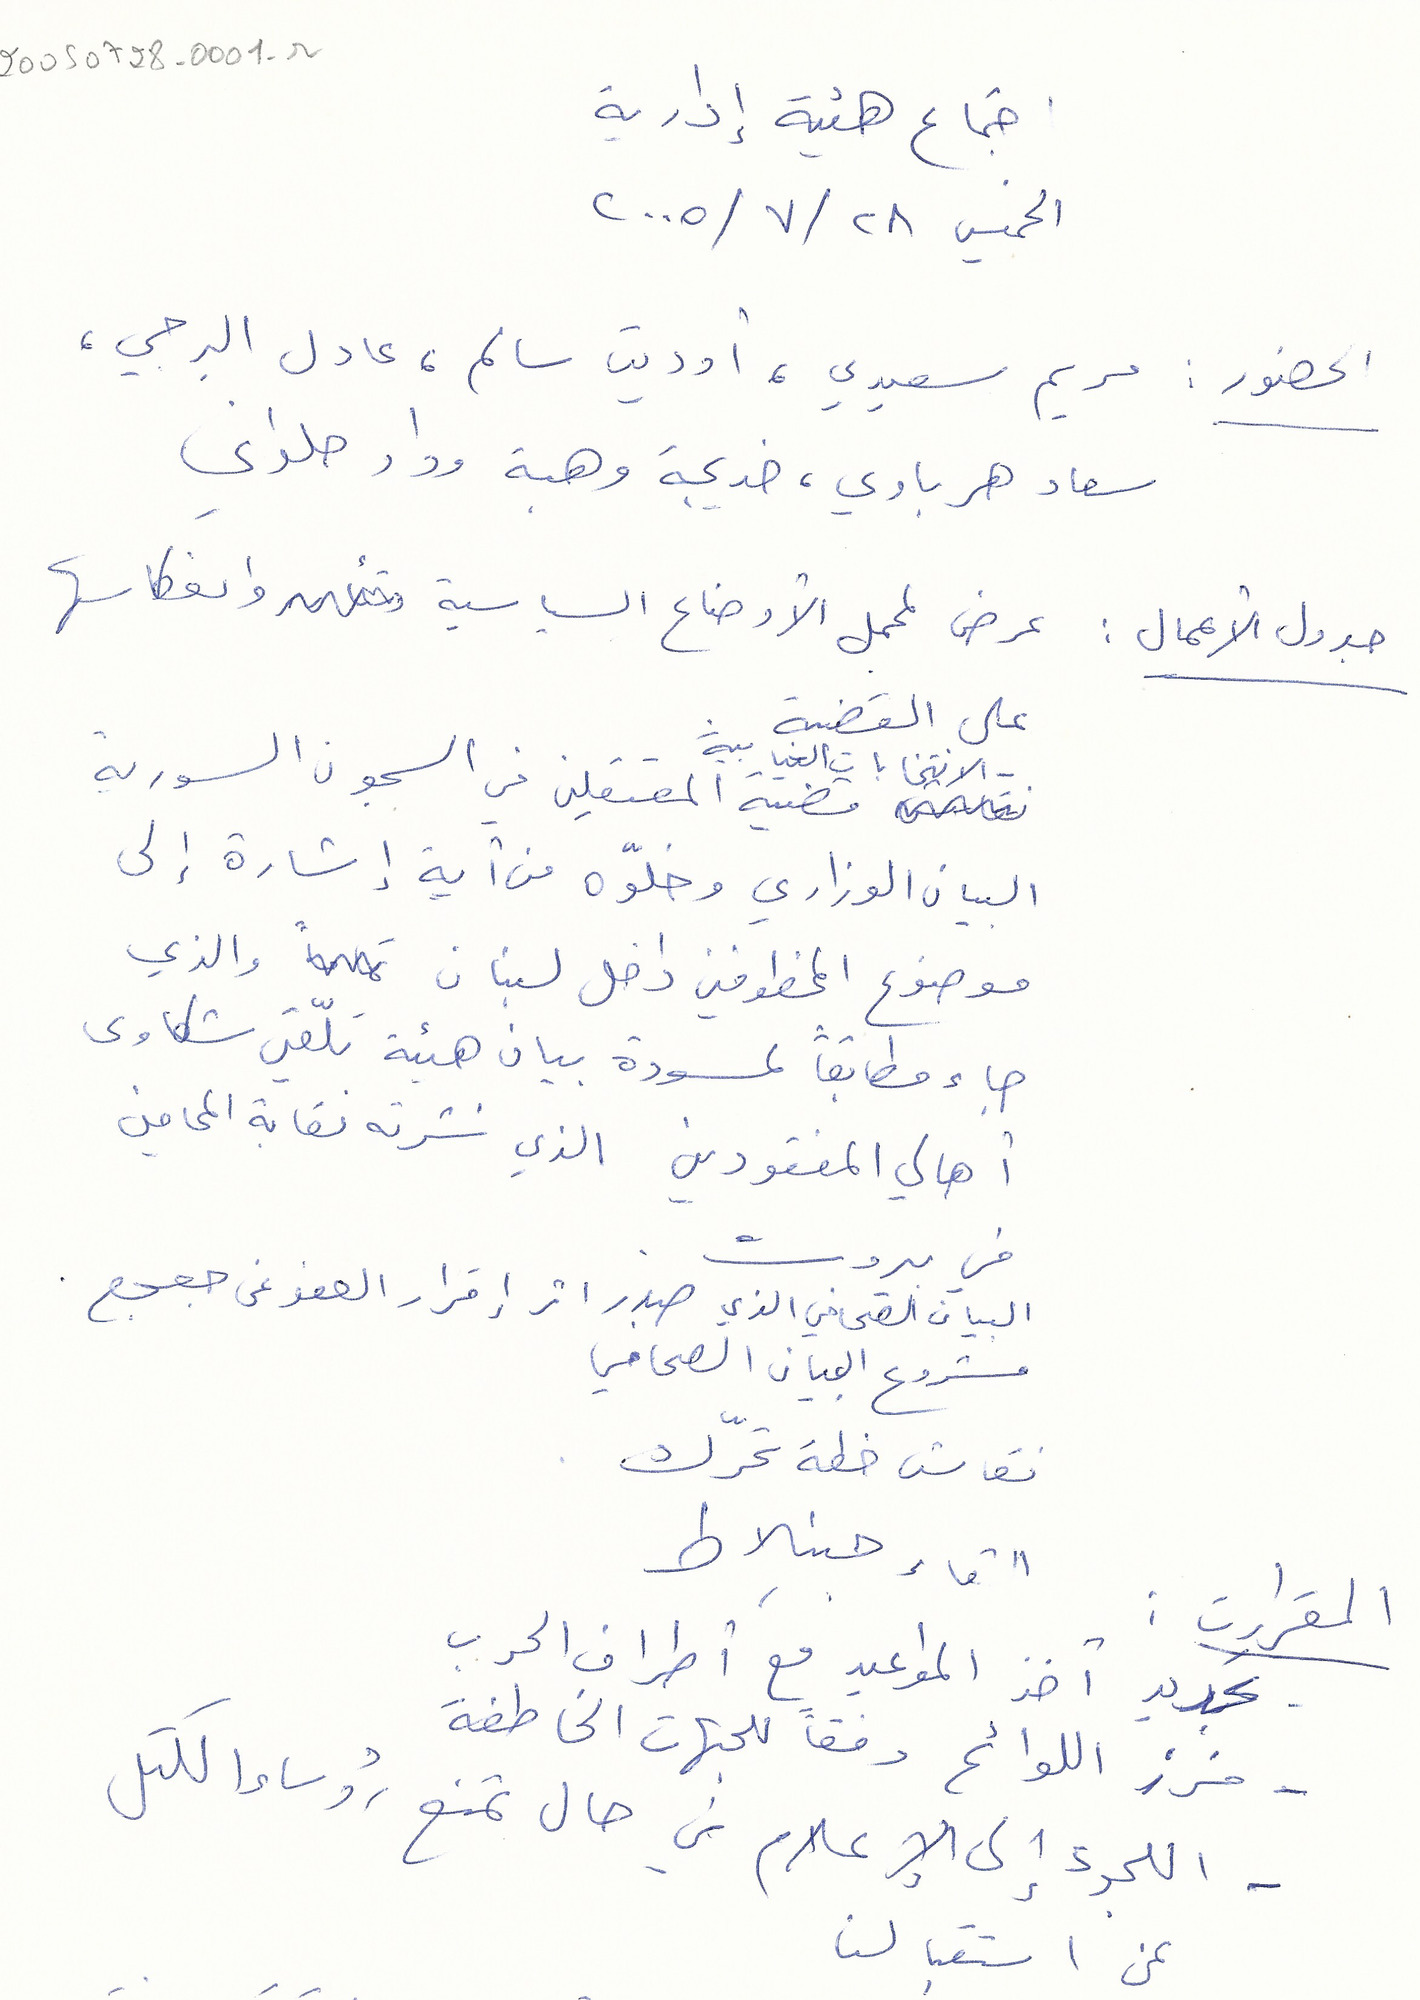 20050728-0001-r
اجتماع هيئة إدارية
الخميس ٢٨ / ٧ / ٢٠٠٥
الحضور : مريم سعيدي ، أوديت سالم ، عادل البرجي ،
سعاد هرباوي ، خديجة وهبة وداد حلواني
جدول الأعمال : عرض لمجمل الأوضاع السياسية وانعكاسها
على القضية
- الانتخابات النيابية
قضية المعتقلين في السجون السورية
البيان الوزاري وخلوّه من أية إشارة إلى
موضوع المخطوفين داخل لبنان والذي
جاء مطابقاً لمسودة بيان هيئة تلّقي شكاوى
أهالي المفقودين الذي نشرته نقابة المحامين
في بيروت
البيان الصحافي الذي صدر اثر إقرار العفو عن جعجع
مشروع البيان الصحافي
نقاش خطة تحرّك
لقاء جنبلاط
المقررات :
- تجديد أخذ المواعيد مع أطراف الحرب
- فرز اللوائح وفقاً للجهات الخاطفة
- اللجوء إلى الإعلام في حال تمنع رؤساء الكتل
عن استقبالنا